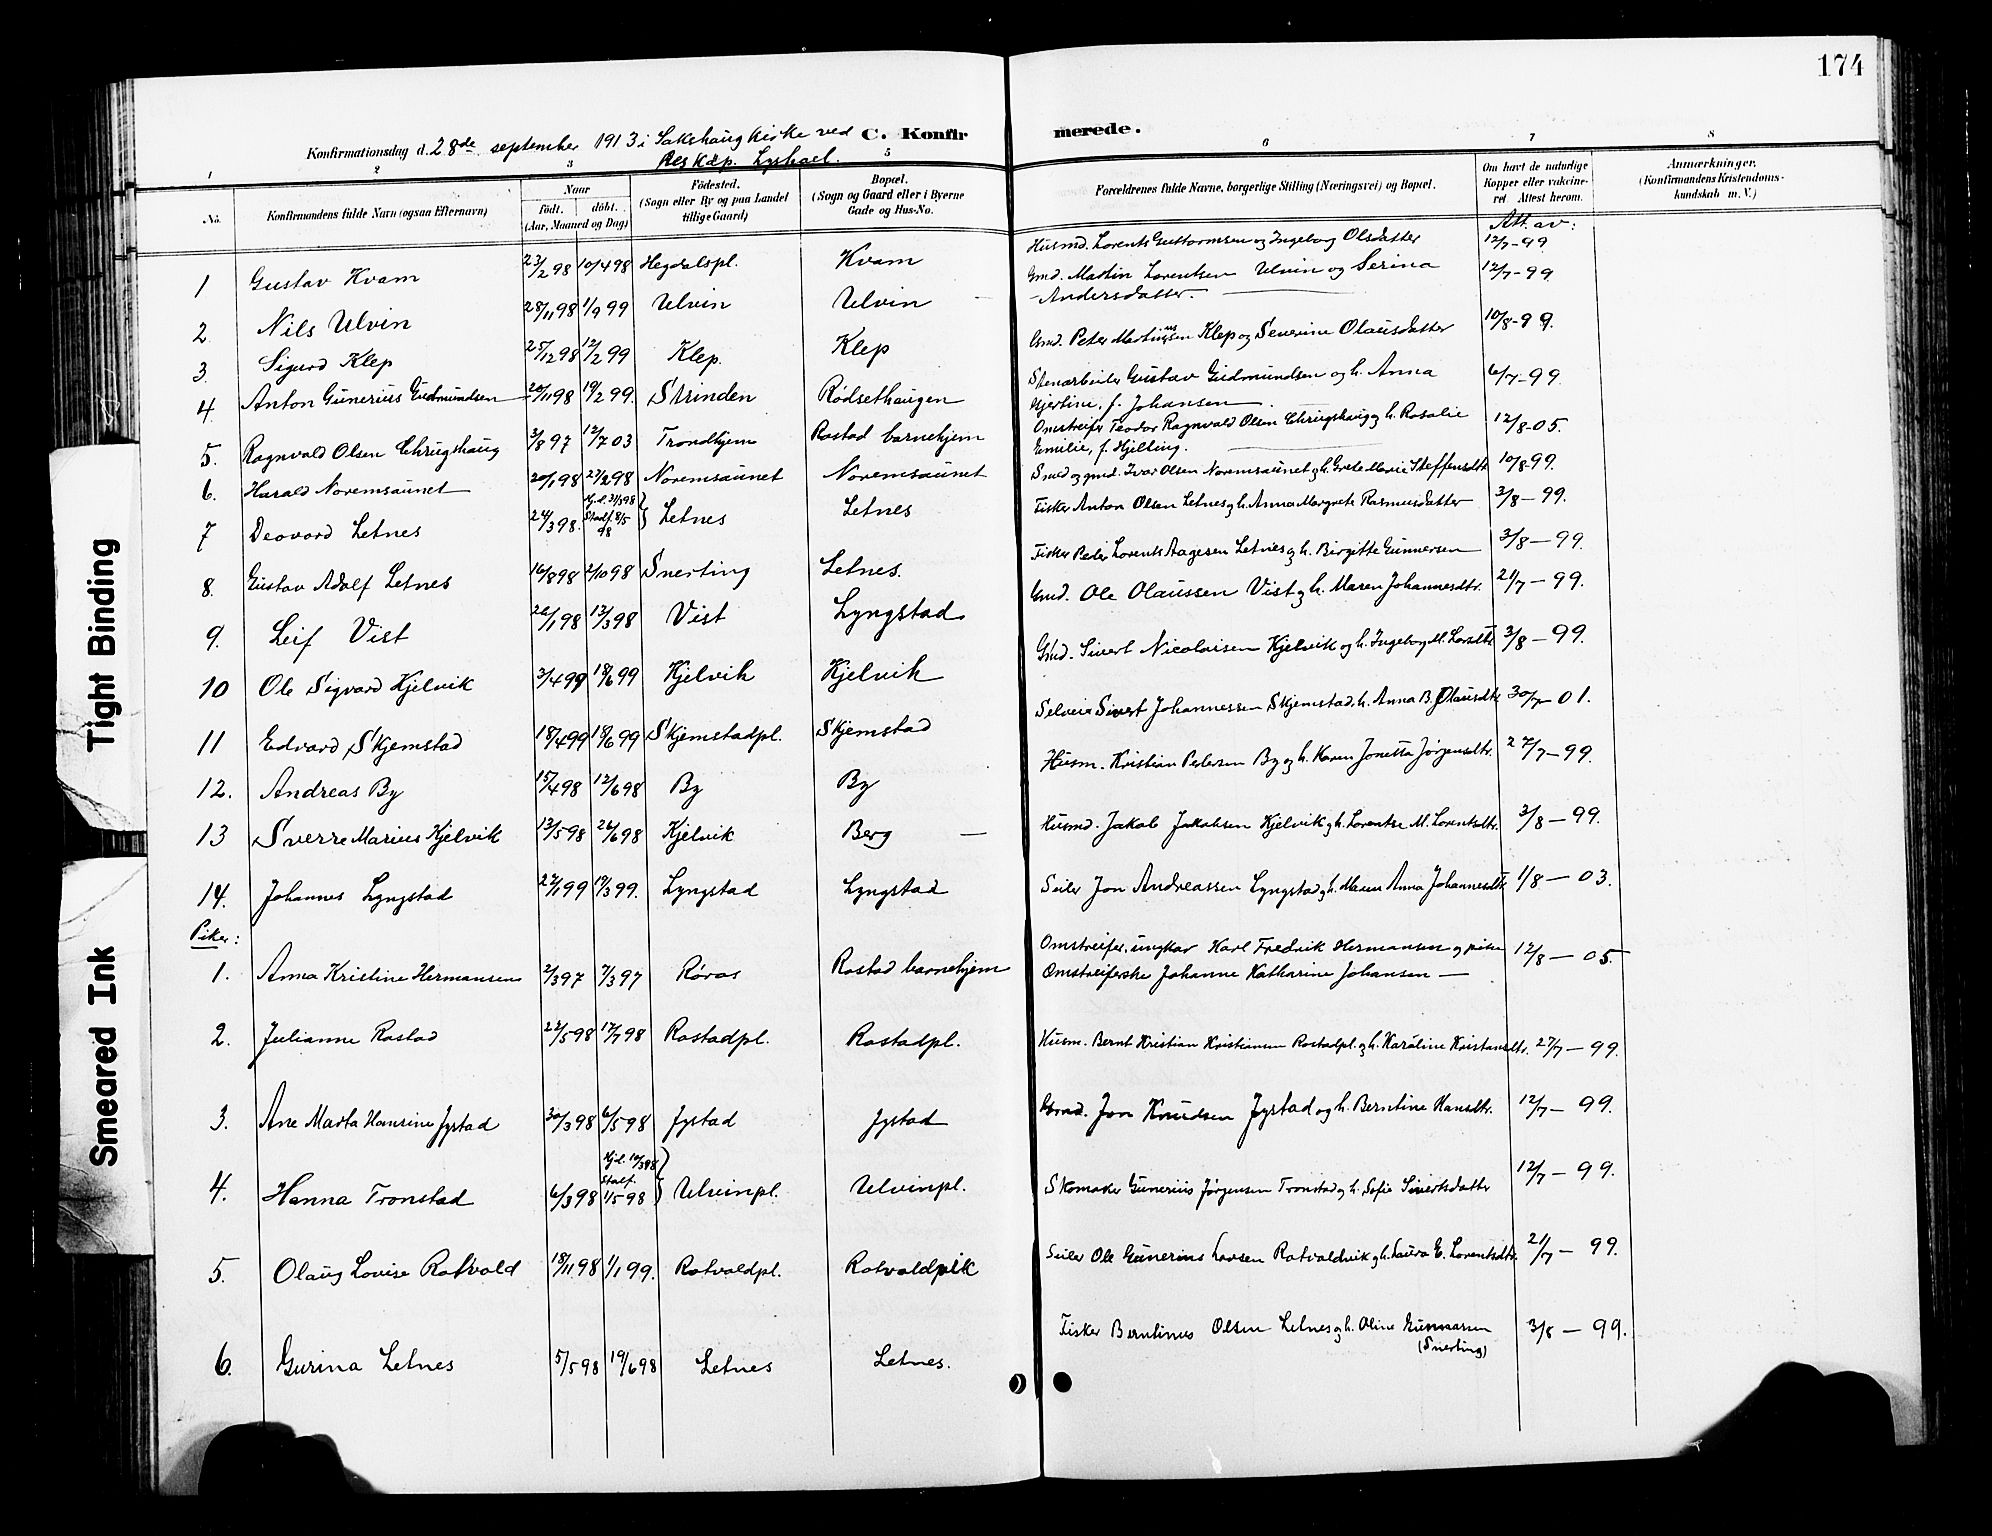 174
C. Konfirmerede.
Konfirmationsdag d. 28de september 1913 i Sakshaug kirke ved
Res Kap. Lyshoel.
1 2 3 5 6 7 8
No. Konfirmandens fulde Navn (ogsaa Efternavn) Naar født. døbt. (Aar, Maaned og Dag) Fødested. (Sogn eller By og paa Landet tillige Gaard) Bopæl. (Sogn og Gaard eller i Byerne Gade og Hus-No. Forældrenes fulde Navne, borgerlige Stilling (Næringsvei) og Bopæl. Om havt de naturlige Kopper eller vakcineret. Attest herom. Anmærkninger. (Konfirmandens Kristendomskundskab m. V.)
Att. av:
1 Gustav Kvam 23/2 98 10/4 98 Hegdalspl. Kvam Husmd. Lorents Guttormsen og Ingeborg Olsdatter 12/7-99
2. Nils Ulvin 28/11 98 1/9 99 Ulvin Ulvin Gmd. Martin Lorentsen Ulvin og Serina
Andersdatter. 12/7-99
3. Sigurd Klep 25/12 98 12/2 99 Klep. Klep Gmd. Peter Martinussen Klep og Severine Olausdatter 10/8-99.
4. Anton Gunerius Gudmundsen 20/11 98 19/2 99. Strinden Rødsethaugen Stenarbeider Gustav Gudmundsen og h. Anna
Gjertine, f. Johansen 6/7-99.
5. Ragnvald Olsen Chrugshaug 3/8 97 12/7 03 Trondhjem Rostad barnehjem Omstreifer Teodor Ragnvald Olsen Chrugshaug og h. Rosalie
Emilie, f. Hjelling. 12/8-05.
6. Harald Noremsaunet 20/1 98 27/2 98 Noremsaunet Noremsaunet Smed og gmd. Ivar Olsen Noremsaunet og h. Grete Marie Steffensdtr. 10/8-99.
7 Deovard Letnes 24/3 98. Hj.d. 31/3 98 Stadf. 8/5 98 Letnes Letnes Fisker Anton Olsen Letnes og h. Anna Margrete Rasmusdatter 3/8-99.
8. Gustav Adolf Letnes 16/8 98 2/10 98 Snerting Letnes. Fisker Peder Lorents Aagesen Letnes og h. Birgitte Gunnersen 3/8-99.
9. Leif Vist 20/1 98 13/3 98 Vist Lyngstad Gmd. Ole Olaussen Vist og h. Maren Johannesdtr. 21/7-99.
10 Ole Sigvard Kjelvik 3/4 99 18/6 99 Kjelvik Kjelvik Gmd. Sivert Nicolaisen Kjelvik og h. Ingeborg M. Larsdtr. 3/8-99.
11 Edvard Skjemstad 18/4 99 18/6 99 Skjemstadpl. Skjemstad Selveier Sivert Johannessen Skjemstad, h. Anna B. Olausdtr. 30/7-01.
12. Andreas By 15/4 98 12/6 98 By By Husm. Kristian Pedersen By og h. Karen Jonetta Jørgensdtr. 27/7-99.
13 Sverre Marius Kjelvik 13/5 98 26/6 98 Kjelvik Berg Husmd. Jakob Jakobsen Kjelvik og h. Lorentse M. Lorentsdtr. 3/8-99.
14. Johannes Lyngstad 22/1 99 19/3 99. Lyngstad Lyngstad Seiler Jon Andreassen Lyngstad og h. Maren Anna Johannesdtr. 1/8-03.
Piker:
1. Anna Kristine Hermansen 2/3 97 7/3 97 Røros Rostad barnehjem Omstreifer, ungkar Karl Fredrik Hermansen og pike
Omstreiferske Johanne Katharine Johansen 12/8-05.
2. Julianne Rostad 22/5 98 17/7 98 Rostadpl. Rostadpl. Husm. Bernt Kristian Kristiansen Rostadpl. og h. Karoline Kristansdtr. 27/7-99.
3. Ane Marta Hansine Jystad 30/3 98 6/5 98 Jystad Jystad Gmd. Jon Knudsen Jystad og h. Berntine Hansdtr. 12/7-99.
4. Hanna Tronstad 6/3 98 Hj.d. 10/3 98 Stadf. 1/5 98 Ulvinpl. Ulvinpl. Skomaker Gunerius Jørgensen Tronstad og h. Sofie Sivertsdatter 12/7-99.
5. Olaug Lovise Rotvold 18/11 98 1/1 99. Rotvoldpl. Rotvoldpvik Seiler Ole Gunerius Larsen Rotvoldvik og h. Laura E. Lorentsdtr. 21/7-99.
6. Gurina Letnes 5/5 98 19/6 98 Letnes Letnes. Fisker Berntinus Olsen Letnes og h. Oline Gunnarsen
(Snerting) 3/8-99.
Tight Binding
Smeared Ink